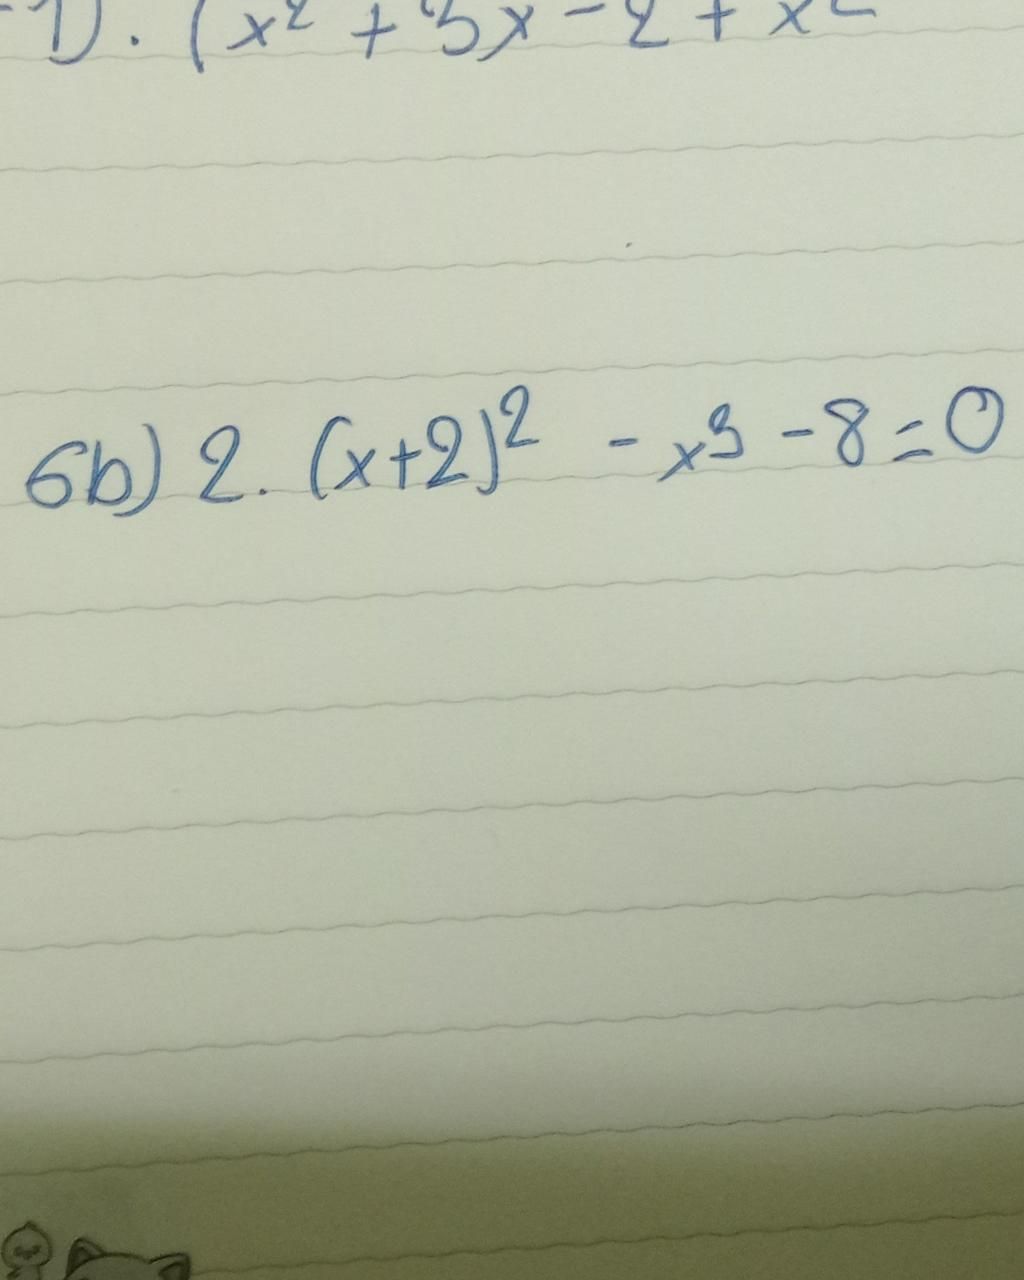 -1). (x² + 3x - 2 + x²
6b) 2. (x+2)² - x³ - 8 = 0